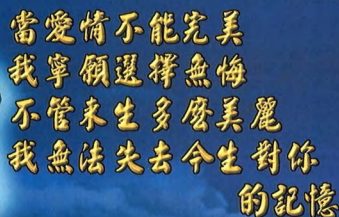 當愛情不能完美
我寧願選擇無悔
不管来生多麼美麗
我無法失去今生對你
的記憶